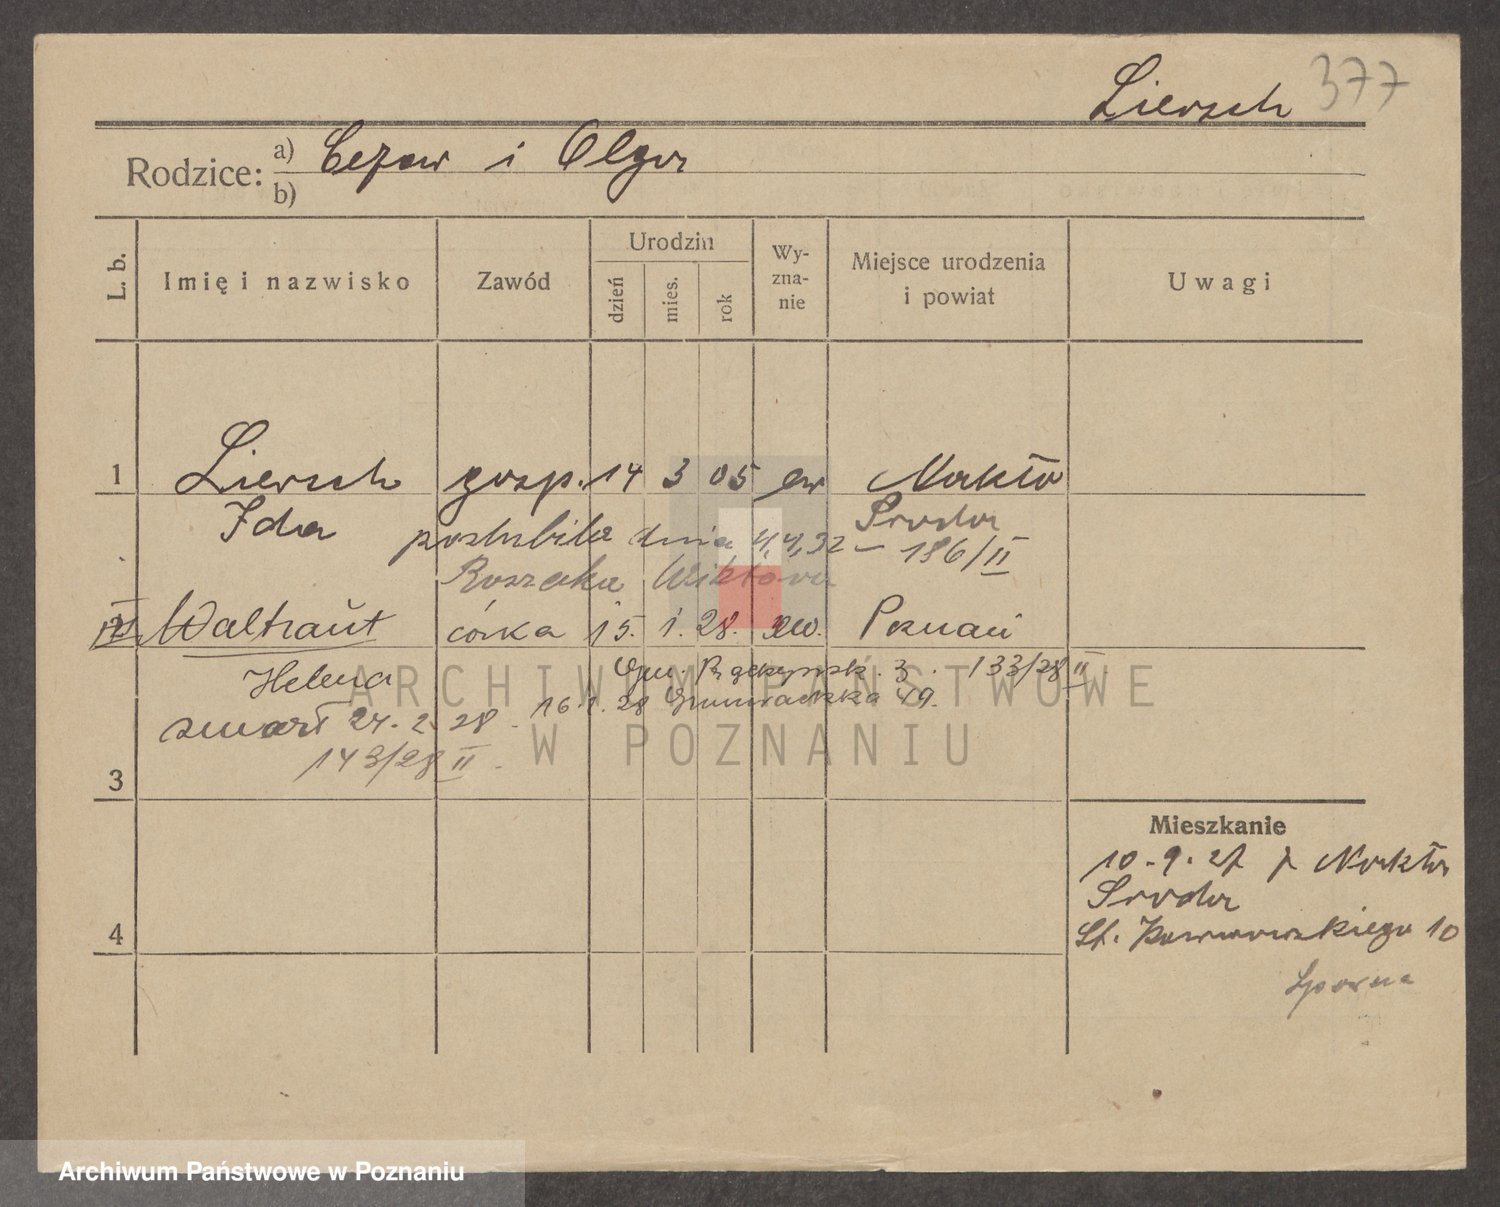 Liersch 377
Rodzice: a) Cezar i Olga
b)
L. b.
Imię i nazwisko
Zawód
Urodzin
dzień
mies.
rok
Wy-
zna-
nie
Miejsce urodzenia
i powiat
Uwagi
1 Liersch gosp. 14 3 05 ew Nakło
Ida Środa
poślubiła dnia 4,4,32 – 186/II
Roszaka Wiktora
Waltraut córka 15. 1. 28. ew. Poznań
Helena 3. 133/28 II
16.1.28 Grunwaldzka 49.
zmarł 24.2.28.
143/28 II.
3
Mieszkanie
10.9.27 z Nakła
Środa
4
10
Sporna
ARCHIWUM PAŃSTWOWE
W POZNANIU
Archiwum Państwowe w Poznaniu